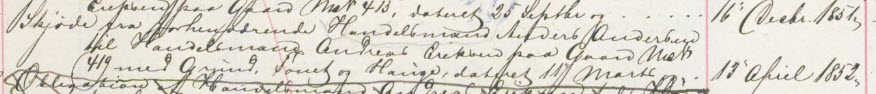 Eriksen paa Gaard Mat 413, dateret 25 Septbr og . . . . . . 16 Decbr. 1851,
Skjøde fra forhenværende Handelsmand Anders Andersen
til Handelsmand Andreas Eriksen paa Gaard Mat
419 med Grund, og Hauge, dateret 11 Marts . . 13 April 1852,
Obligation Handelsmand